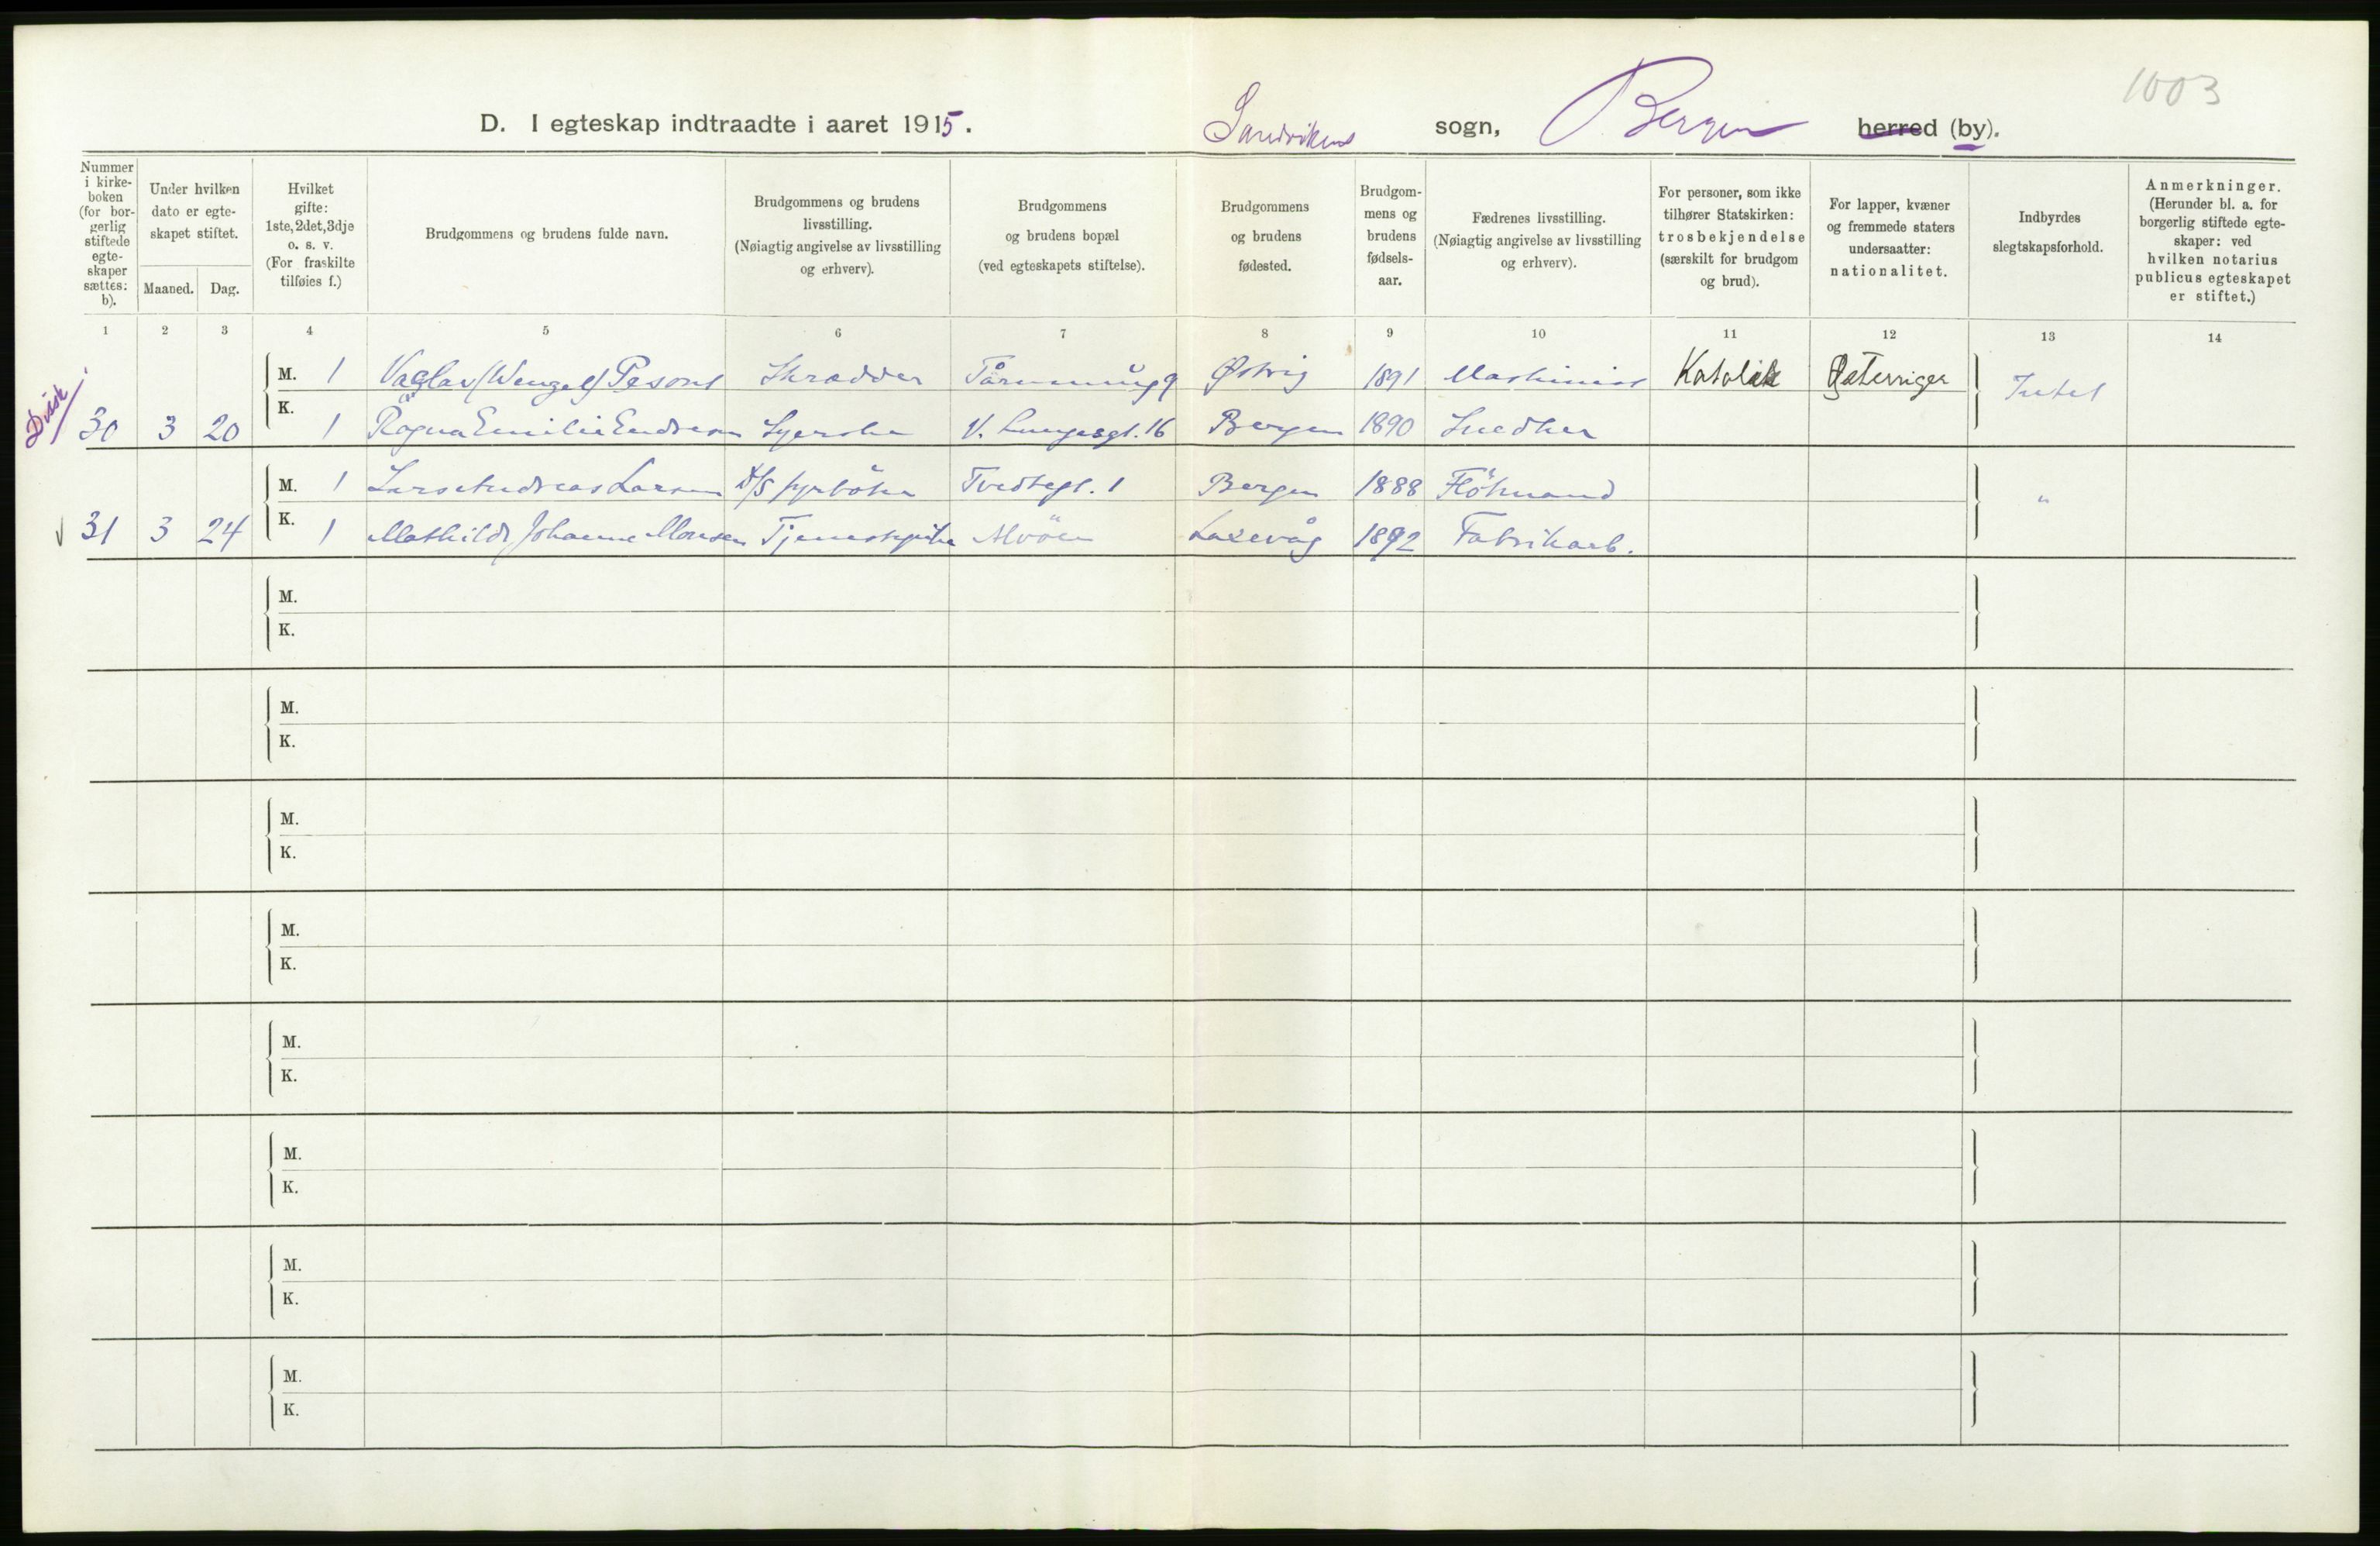 1003
D. I egteskap indtraadte i aaret 1915. Sandvikens sogn, Bergen herred (by).
Nummer i kirke-boken (for bor-gerlig stiftede egte-skaper sættes: b).
Under hvilken dato er egte-skapet stiftet.
Maaned. Dag.
Hvilket gifte: 1ste, 2det, 3dje o. s. v. (For fraskilte tilføies f.)
Brudgommens og brudens fulde navn.
Brudgommens og brudens livsstilling. (Nøiagtig angivelse av livsstilling og erhverv).
Brudgommens og brudens bopæl (ved egteskapets stiftelse).
Brudgommens og brudens fødested.
Brudgom-mens og brudens fødsels-aar.
Fædrenes livsstilling. (Nøiagtig angivelse av livsstilling og erhverv).
For personer, som ikke tilhører Statskirken: trosbekjendelse (særskilt for brudgom og brud).
For lapper, kvæner og fremmede staters undersaatter: nationalitet.
Indbyrdes slegtskapsforhold.
Anmerkninger. (Herunder bl. a. for borgerlig stiftede egte-skaper: ved hvilken notarius publicus egteskapet er stiftet.)
1 2 3 4 5 6 7 8 9 10 11 12 13 14
M. 1 Vaclav (Wenzel) Skrædder Østrig 1891 Maskinist Katolik Østerriger Intet
Disk 30 3 20 K. 1 Ragna Emilie Endresen Syerske V. Lungegt. 16 Bergen 1890 Snedker
M. 1 Lars Andreas Larsen D/S fyrbøter Tvedtegt. 1 Bergen 1888 Fløtmand "
31 3 24 K. 1 Mathilde Johanne Monsen Tjenestepike Alvöen Laxevåg 1892 Fabrikarb.
M.
K.
M.
K.
M.
K.
M.
K.
M.
K.
M.
K.
M.
K.
M.
K.